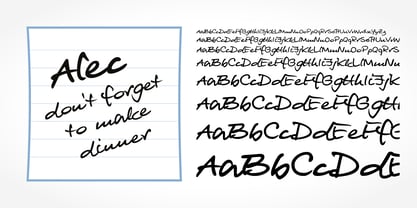 Alec
don't forget
to make
dinner
AaBbCcDdEeFfGgHhIiJjKkLlMmNnOoPpQqRrSsTtUuVvWwXxYyZz
AaBbCcDdEeFfGgHhIiJjKkLlMmNnOoPpQqRrSsTtUuVvW
AaBbCcDdEeFfGgHhIiJjKkLlMmNnOoPpQqRrS
AaBbCcDdEeFfGgHhIiJjKkLlMmNn
AaBbCcDdEeFfGgHhIiJjK
AaBbCcDdEeFfGgHh
AaBbCcDdEeFfG
AaBbCcDdE